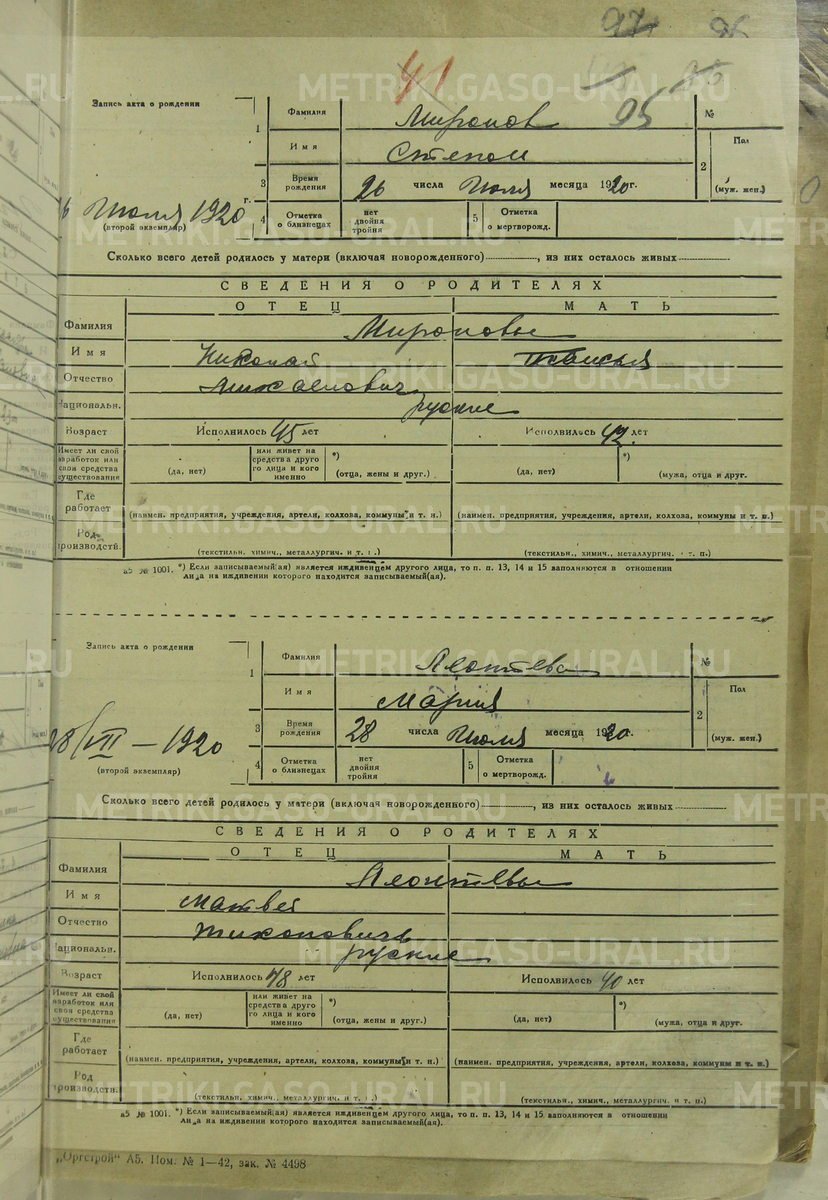 97 96
41
METRIKI.GASO-URAL.RU
Запись акта о рождении
1 Фамилия Миронов 95 №
Имя Степан
2 Пол (муж. жен.)
3 Время рождения 26 числа Июля месяца 1920г.
6 Июля 1920 г.
(второй экземпляр)
4 Отметка о близнецах нет двойня тройня 5 Отметка о мертворожд.
Сколько всего детей родилось у матери (включая новорожденного) , из них осталось живых
СВЕДЕНИЯ О РОДИТЕЛЯХ
ОТЕЦ МАТЬ
Фамилия Мироновы
Имя Николай
Отчество
Национальн. русские
Возраст Исполнилось 45 лет Исполнилось 42 лет
Имеет ли свой заработок или свои средства существования (да, нет) или живет на средства другого лица и кого именно *) (отца, жены и друг.) (да, нет) *) (мужа, отца и друг.
Где работает (наимен. предприятия, учреждения, артели, колхоза, коммуны и т. п.) (наимен. предприятия, учреждения, артели, колхоза, коммуны и т. п.)
Род производств. (текстильн. химич., металлургич. и т. п.) (текстильн., химич., металлургич. и т. п.)
а5 № 1001. *) Если записываемый(ая) является иждивенцем другого лица, то п. п. 13, 14 и 15 заполняются в отношении
лица на иждивении которого находится записываемый(ая).
Запись акта о рождении
1 Фамилия Леонтьева №
Имя Мария
2 Пол (муж. жен.)
3 Время рождения 28 числа Июля месяца 1920г.
28/VII – 1920
(второй экземпляр)
4 Отметка о близнецах нет двойня тройня 5 Отметка о мертворожд.
Сколько всего детей родилось у матери (включая новорожденного) , из них осталось живых
СВЕДЕНИЯ О РОДИТЕЛЯХ
ОТЕЦ МАТЬ
Фамилия Леонтьевы
Имя Матвей
Отчество Тихоновичъ
Национальн. русские
Возраст Исполнилось 48 лет Исполнилось 40 лет
Имеет ли свой заработок или свои средства существования (да, нет) или живет на средства другого лица и кого именно *) (отца, жены и друг.) (да, нет) *) (мужа, отца и друг.
Где работает (наимен. предприятия, учреждения, артели, колхоза, коммуны и т. п.) (наимен. предприятия, учреждения, артели, колхоза, коммуны и т. п.)
Род производств. (текстильн., химич., металлургич. и т. п.) (текстильн., химич., металлургич. и т. п.)
а5 № 1001. *) Если записываемый(ая) является иждивенцем другого лица, то п. п. 13, 14 и 15 заполняются в отношении
лица на иждивении которого находится записываемый(ая).
„Оргстрой" А5. Пом. № 1—42, зак. № 4498